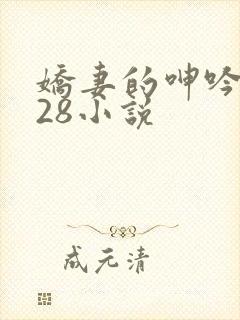 嬌妻的呻吟
28小説
成元清